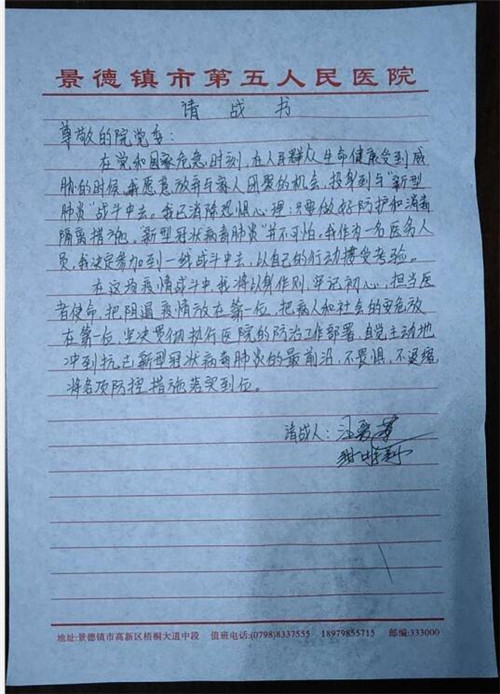 景德镇市第五人民医院
请战书
尊敬的院党委:
在党和国家危急时刻,在人民群众生命健康受到威
胁的时候,我愿意放弃与家人团聚的机会,投身到与“新型
肺炎”战斗中去。我已消除恐惧心理:只要做好防护和消毒
隔离措施,新型冠状病毒肺炎“并不可怕,我作为一名医务人
员,我决定参加到一线战斗中去,以自己的行动接受考验。
在这场疫情战斗中,我将以身作则,牢记初心,担当医
者使命,把阻遏疫情放在第一位,把病人和社会的安危放
在第一位,坚决贯彻执行医院的防治工作部署,自觉主动地
冲到抗击新型冠状病毒肺炎的最前沿,不畏惧,不退缩,
将各项防控措施落实到位。
请战人:
地址:景德镇市高新区梧桐大道中段 值班电话:(0798)8337555 18979855715 邮编:333000